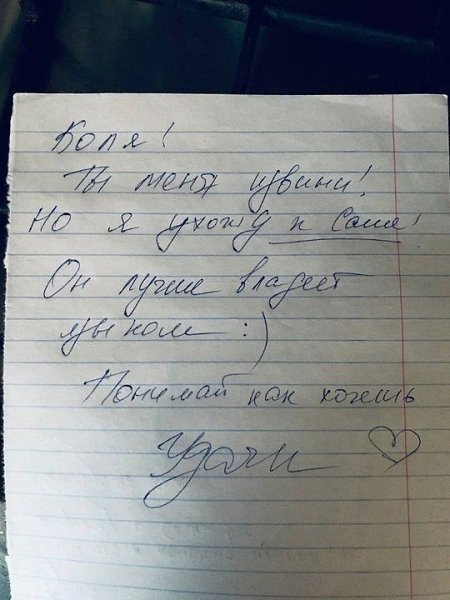 Коля!
Ты меня извини!
Но я ухожу к Саше!
Он лучше владеет
языком :)
Понимай как хочешь
Удачи ♡